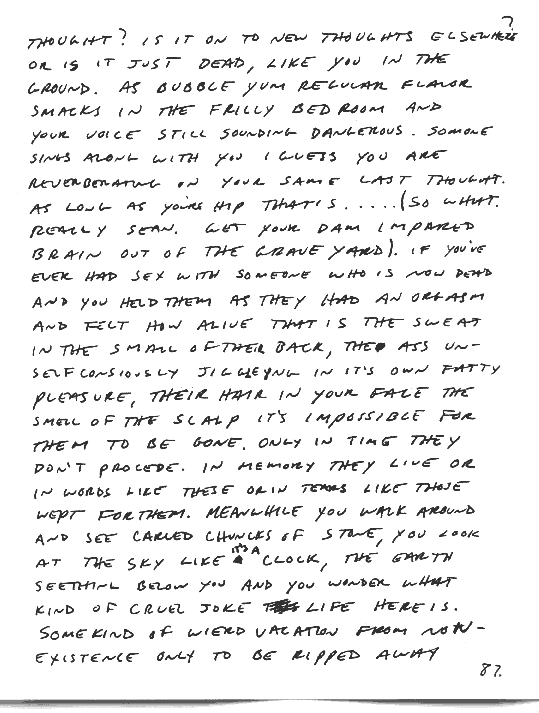 ?
THOUGHT? IS IT ON TO NEW THOUGHTS ELSEWHERE
OR IS IT JUST DEAD, LIKE YOU IN THE
GROUND. AS BUBBLE YUM REGULAR FLAVOR
SMACKS IN THE FRILLY BEDROOM AND
YOUR VOICE STILL SOUNDING DANGEROUS. SOMONE
SINGS ALONG WITH YOU I GUESS YOU ARE
REVERBERATING ON YOUR SAME LAST THOUGHT.
AS LONG AS YOU'RE HIP THAT IS.....(SO WHAT.
REALLY SEAN. GET YOUR DAM IMPARED
BRAIN OUT OF THE GRAVE YARD). IF YOU'VE
EVER HAD SEX WITH SOMEONE WHO IS NOW DEAD
AND YOU HELD THEM AS THEY HAD AN ORGASM
AND FELT HOW ALIVE THAT IS THE SWEAT
IN THE SMALL OF THEIR BACK, THE ASS UN-
SELFCONSIOUSLY JIGGLEYNG IN IT'S OWN FATTY
PLEASURE, THEIR HAIR IN YOUR FACE THE
SMELL OF THE SCALP IT'S IMPOSSIBLE FOR
THEM TO BE GONE. ONLY IN TIME THEY
DON'T PROCEDE. IN MEMORY THEY LIVE OR
IN WORDS LIKE THESE OR IN TEARS LIKE THOSE
WEPT FOR THEM. MEANWHILE YOU WALK AROUND
AND SEE CARVED CHUNCKS OF STONE, YOU LOOK
AT THE SKY LIKE IT'S A CLOCK, THE EARTH
SEETHING BELOW YOU AND YOU WONDER WHAT
KIND OF CRUEL JOKE LIFE HERE IS.
SOME KIND OF WIERD VACATION FROM NON-
EXISTENCE ONLY TO BE RIPPED AWAY
87.